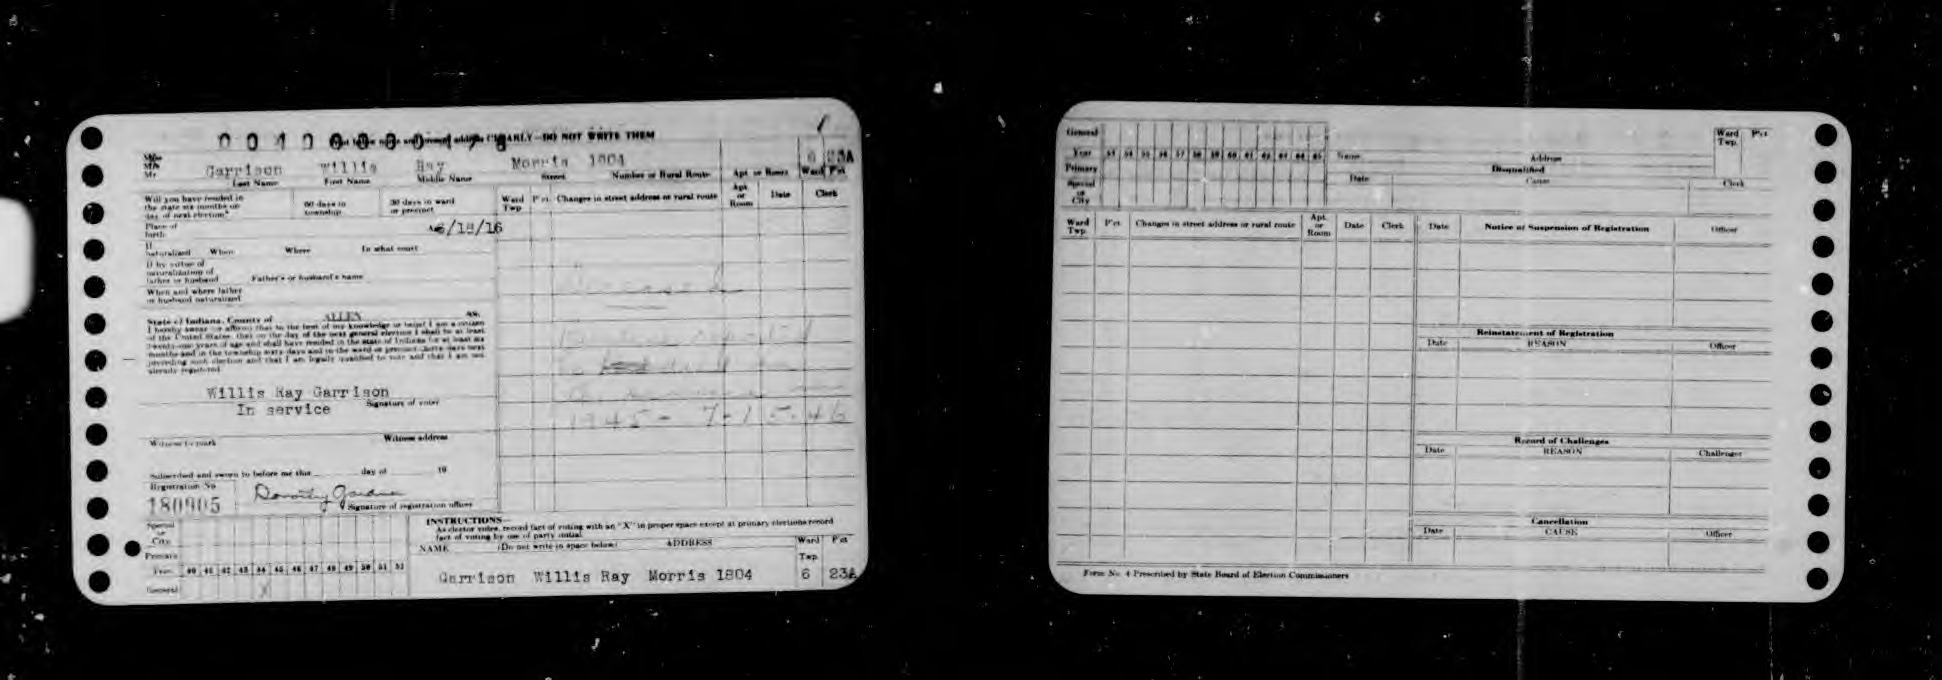 CLEARLY—DO NOT WRITE THEM
Miss
Mrs.
Mr.
Garrison Willis Ray Morris 1804 6 23A
Last Name First Name Middle Name Street Number or Rural Route Apt or Room Ward Pct
Will you have resided in
the state six months on
day of next election?
60 days in
township
30 days in ward
or precinct
Ward
Twp
Pct
Changes in street address or rural route
Apt
or
Room
Date
Clerk
Place of
birth
/18/16
If
naturalized When Where In what court
If by virtue of
naturalization of
father or husband Father's or husband's name
When and where father
or husband naturalized
State of Indiana, County of ALLEN ss.
I hereby swear (or affirm) that to the best of my knowledge or belief I am a citizen
of the United States, that on the day of the next general election I shall be at least
twenty-one years of age and shall have resided in the state of Indiana for at least six
months and in the township sixty days and in the ward or precinct thirty days next
preceding such election and that I am legally qualified to vote and that I am not
already registered.
Willis Ray Garrison
In service
Signature of voter
1945- 7-15-46
Witness to mark Witness address
Subscribed and sworn to before me this day of 19
Registration No.
180905
Dorothy Gardner
Signature of registration officer
Special
or
City
Primary
Year 40 41 42 43 44 45 46 47 48 49 50 51 52
General X
INSTRUCTIONS—
As elector votes, record fact of voting with an "X" in proper space except at primary elections record
fact of voting by use of party initial.
NAME (Do not write in space below) ADDRESS Ward Pct
Twp.
Garrison Willis Ray Morris 1804 6 23A
General
Year 53 54 55 56 57 58 59 60 61 62 63 64 65
Primary
Special
or
City
Name Address
Ward
Twp.
Pct
Disqualified
Date Cause Clerk
Ward
Twp.
Pct
Changes in street address or rural route
Apt.
or
Room
Date
Clerk
Date Notice of Suspension of Registration Officer
Reinstatement of Registration
Date REASON Officer
Record of Challenges
Date REASON Challenger
Cancellation
Date CAUSE Officer
Form No. 4 Prescribed by State Board of Election Commissioners